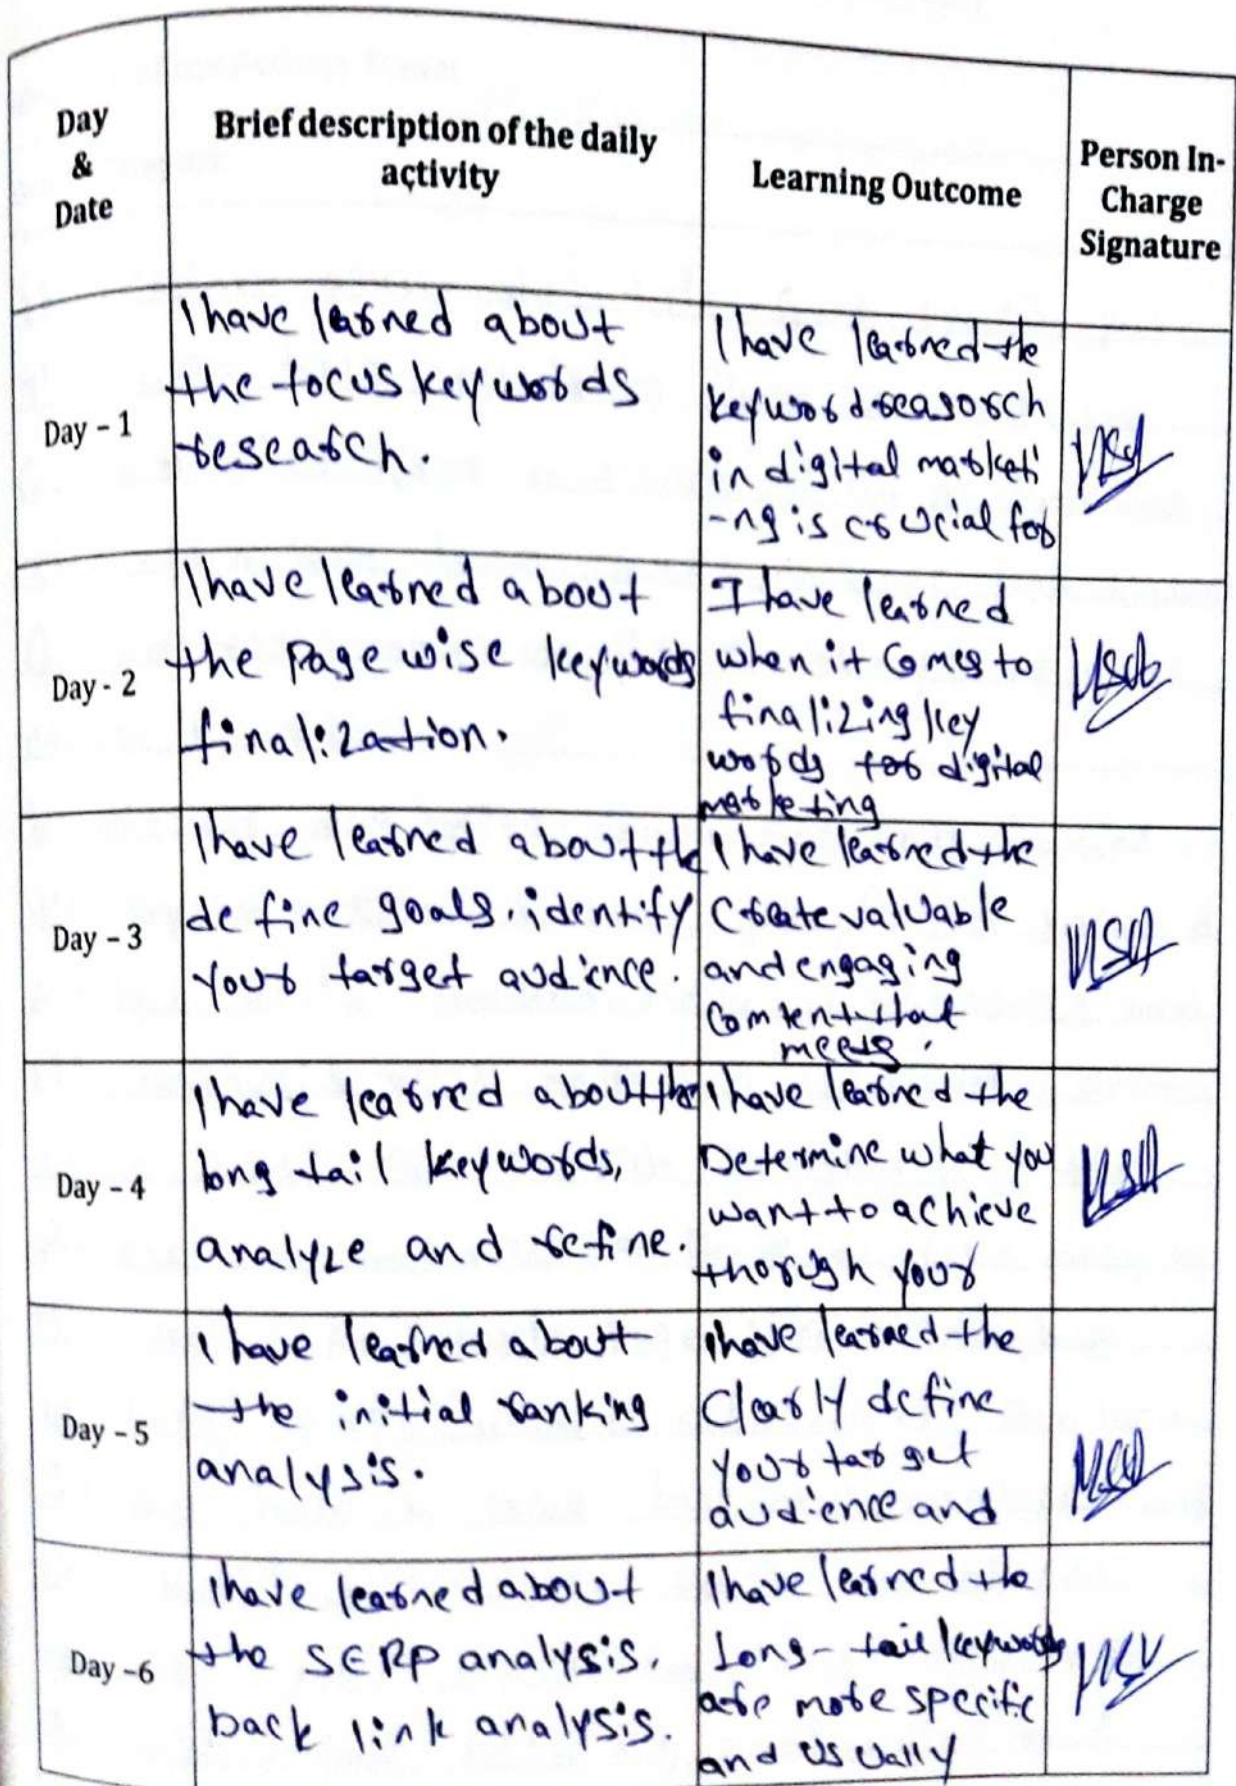 Day
&
Date
Brief description of the daily
activity
Learning Outcome
Person In-
Charge
Signature
Day - 1
I have learned about
the focus keywords
research.
I have learned the
keyword reasorch
in digital marketi
-ng is crucial for
Day - 2
I have learned about
the Page wise keywords
finalization.
I have learned
when it comes to
finalizing key
words for digital
marketing
Day - 3
I have learned about the
define goals, identify
your target audience.
I have learned the
Create valuable
and engaging
content that
meets.
Day - 4
I have learned about the
long tail keywords,
analyze and refine.
I have learned the
Determine what you
want to achieve
thorugh your
Day - 5
I have learned about
the initial ranking
analysis.
I have learned the
Clearly define
your target
audience and
Day -6
I have learned about
the SERP analysis,
back link analysis.
I have learned the
Long-tail keywords
are more specific
and usually